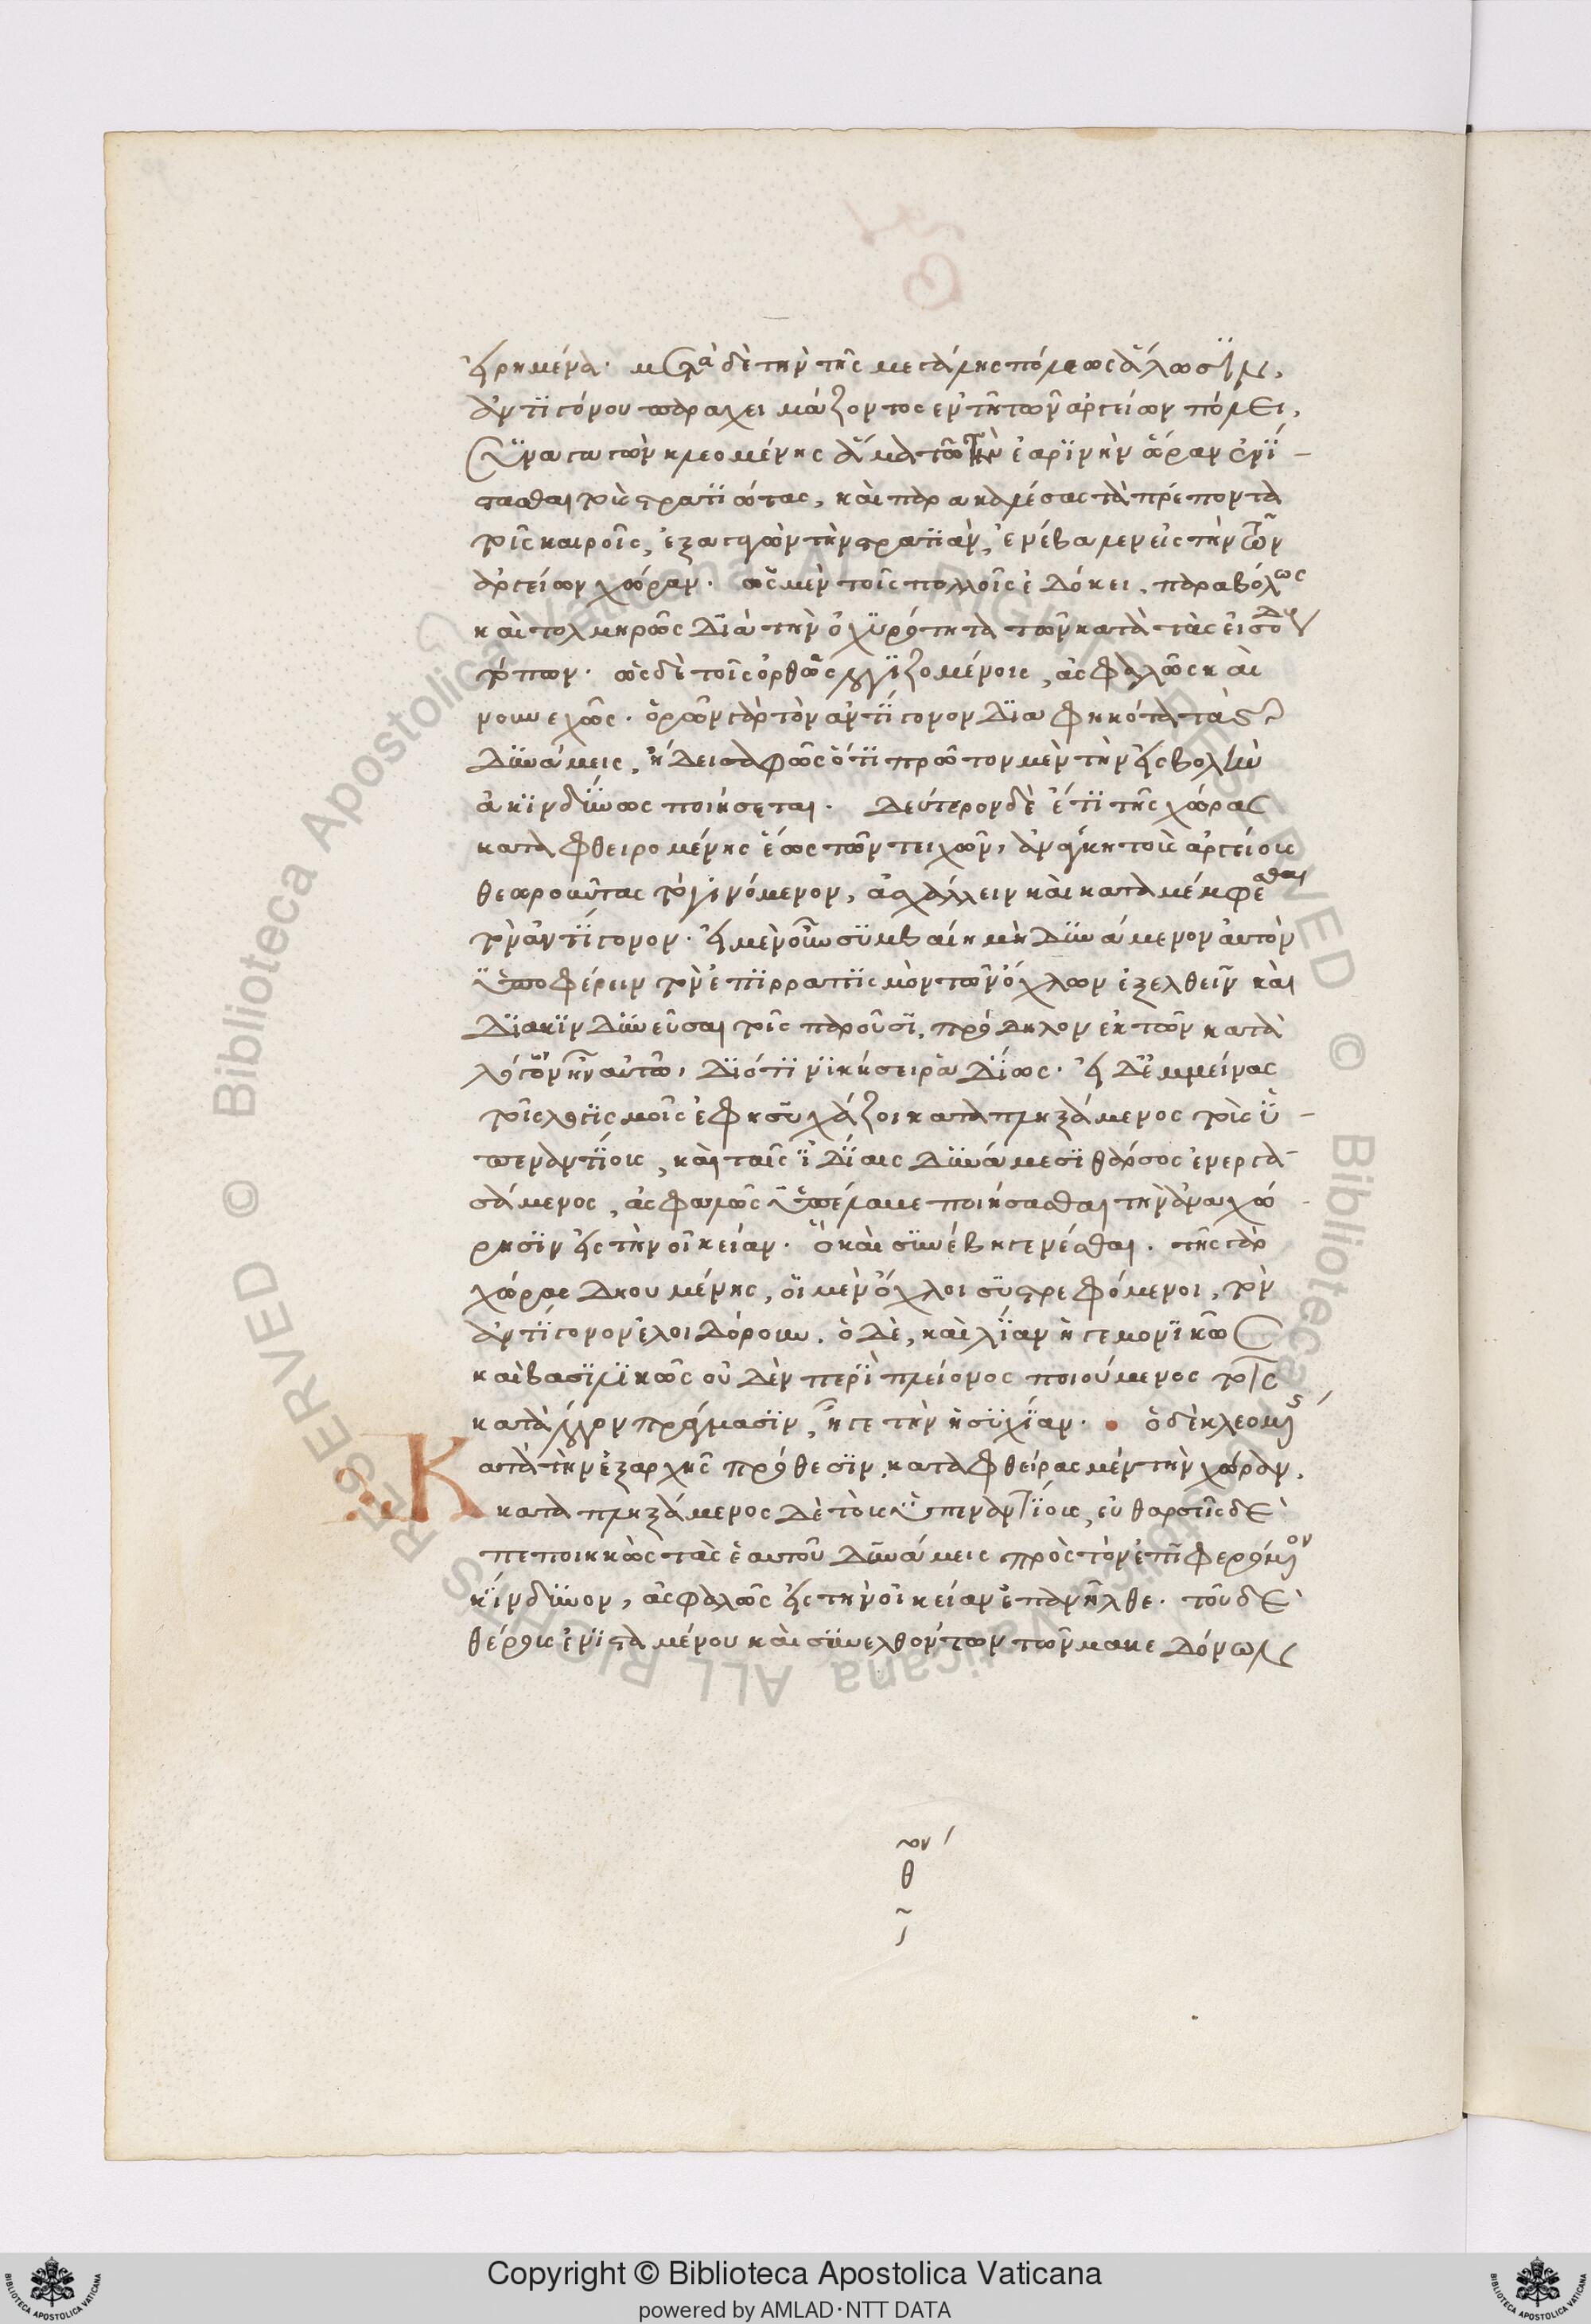 εἰρημένα. μετὰ δὲ τὴν τῆς μεγάλης πόλεως ἅλωσϊν,
ἀντϊγόνου παραχειμάζοντος ἐν τῆ τῶν ἀργείων πόλει,
συναγαγὼν κλεομένης ἅμα τῶ τὴν ἐαρϊνὴν ὥραν ἐνΐ-
στασθαι τοὺς στρατϊώτας, καὶ παρακαλέσας τὰ πρέποντα
τοῖς καιροῖς, ἐξαγαγὼν τὴν στρατϊὰν, ἐνέβαλεν εἰς τὴν τῶν
ἀργείων χώραν. ὡς μὲν τοῖς πολλοῖς ἐδόκει, παραβόλως
καὶ τολμηρῶς δϊὰ τὴν ὀχϋρότητα τῶν κατὰ τὰς εἰσόδους
τόπων. ὡς δὲ τοῖς ὀρθῶς λογϊζομένοις, ἀσφαλῶς καὶ
νουνεχῶς. ὁρῶν γὰρ τὸν ἀντΐγονον δϊαφηκότα τὰς
δϋνάμεις, ἤδει σαφῶς ὅτϊ πρῶτον μὲν τὴν εἰσβολὴν
ἀκϊνδΰνως ποιήσεται. δεύτερον δὲ ἔτϊ τῆς χώρας
καταφθειρομένης ἕως τῶν τειχῶν, ἀνάγκη τοὺς ἀργείους
θεωροῦντας τὸ γϊνόμενον, ἀσχάλλειν καὶ καταμέμφεσθαι
τὸν ἀντΐγονον. εἰ μὲν οὖν σϋμβαίη μὴ δϋνάμενον αὐτὸν
ὑποφέρειν τὸν ἐπϊρραπϊσμὸν τῶν ὄχλων ἐξελθεῖν καὶ
δϊακϊνδϋνεῦσαι τοῖς παροῦσϊ, πρόδηλον ἐκ τῶν κατὰ
λόγον ἦν αὐτῶ, δϊότϊ νϊκήσει ῥαδΐως. εἰ δ' ἐμμείνας
τοῖς λογϊσμοῖς ἐφησϋχάζοι καταπληξάμενος τοὺς ὑ-
πεναντΐους, καὶ ταῖς ἰδΐαις δϋνάμεσϊ θάρσος ἐνεργα-
σάμενος, ἀσφαλῶς ὑπέλαβε ποιήσασθαι τὴν ἀναχώ-
ρησϊν εἰς τὴν οἰκείαν. ὃ καὶ σϋνέβη γενέσθαι. τῆς γὰρ
χώρας δηουμένης, οἱ μὲν ὄχλοι σϋστρεφόμενοι, τὸν
ἀντΐγονον ἐλοιδόρουν. ὁ δὲ, καὶ λΐαν ἡγεμονϊκῶς
καὶ βασϊλϊκῶς οὐδὲν περϊ πλείονος ποιούμενος τοῖς
κατὰ λόγον πράγμασϊν, ἦγε τὴν ἡσϋχΐαν. ὁ δὲ κλεομένης
Κατὰ τὴν ἐξαρχῆς πρόθεσϊν, καταφθείρας μὲν τὴν χώραν,
καταπληξάμενος δὲ τοὺς ὑπεναντΐους, εὐθαρσεῖς δὲ
πεποιηκὼς τὰς ἑαυτοῦ δϋνάμεις πρὸς τὸν ἐπϊφερόμενον
κΐνδϋνον, ἀσφαλῶς εἰς τὴν οἰκείαν ἐπανῆλθε. τοῦ δὲ
θέρους ἐνϊσταμένου καὶ σϋνελθόντων τῶν μακεδόνων
Copyright © Biblioteca Apostolica Vaticana
powered by AMLAD·NTT DATA